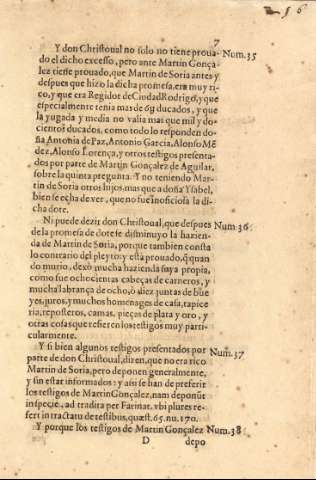 216
7
Y don Christoual no solo no tiene proua- Num.35
do el dicho excesso, pero ante Martin Gonça
lez tiene prouado, que Martin de Soria antes y
despues que hizo la dicha promesa, era muy ri-
co, y que era Regidor de Ciudad Rodrigo, y que
especialmente tenia mas de 6y ducados, y que
la yugada y media no valia mas que mil y do-
cientos ducados, como todo lo responden do-
ña Antonia de Paz, Antonio Garcia, Alonso Mē
dez, Alonso Lorença, y otros testigos presenta-
dos por parte de Martin Gonçalez de Aguilar,
sobre la quinta pregunta. Y no teniendo Mar-
tin de Soria otros hijos, mas que a doña Ysabel,
bien se echa de ver, que no fue inoficiosa la di-
cha dote.
Ni puede dezir don Christoual, que despues Num 36.
de la promesa de dote se disminuyo la hazien-
da de Martin de Soria, porque tambien consta
lo contrario del pleyto: y està prouado, q̃ quan
do murio, dexò mucha hazienda suya propia,
como fue ochocientas cabeças de carneros, y
mucha labrança de ocho, ò diez juntas de bue
yes, juros, y muchos homenages de casa, tapice
ria, reposteros, camas, pieças de plata y oro, y
otras cosas que refieren los testigos muy parti-
cularmente.
Y si bien algunos testigos presentados por Num.37
parte de don Christoual, dizen, que no era rico
Martin de Soria, pero deponen generalmente,
y sin estar informados: y assi se han de preferir
los testigos de Martin Gonçalez, nam deponūt
in specie, ad tradita per Farinac. vbi plures re-
fert in tractatu de testibus, quæst. 65. nu. 170.
Y porque los testigos de Martin Gonçalez Num.38
D depo